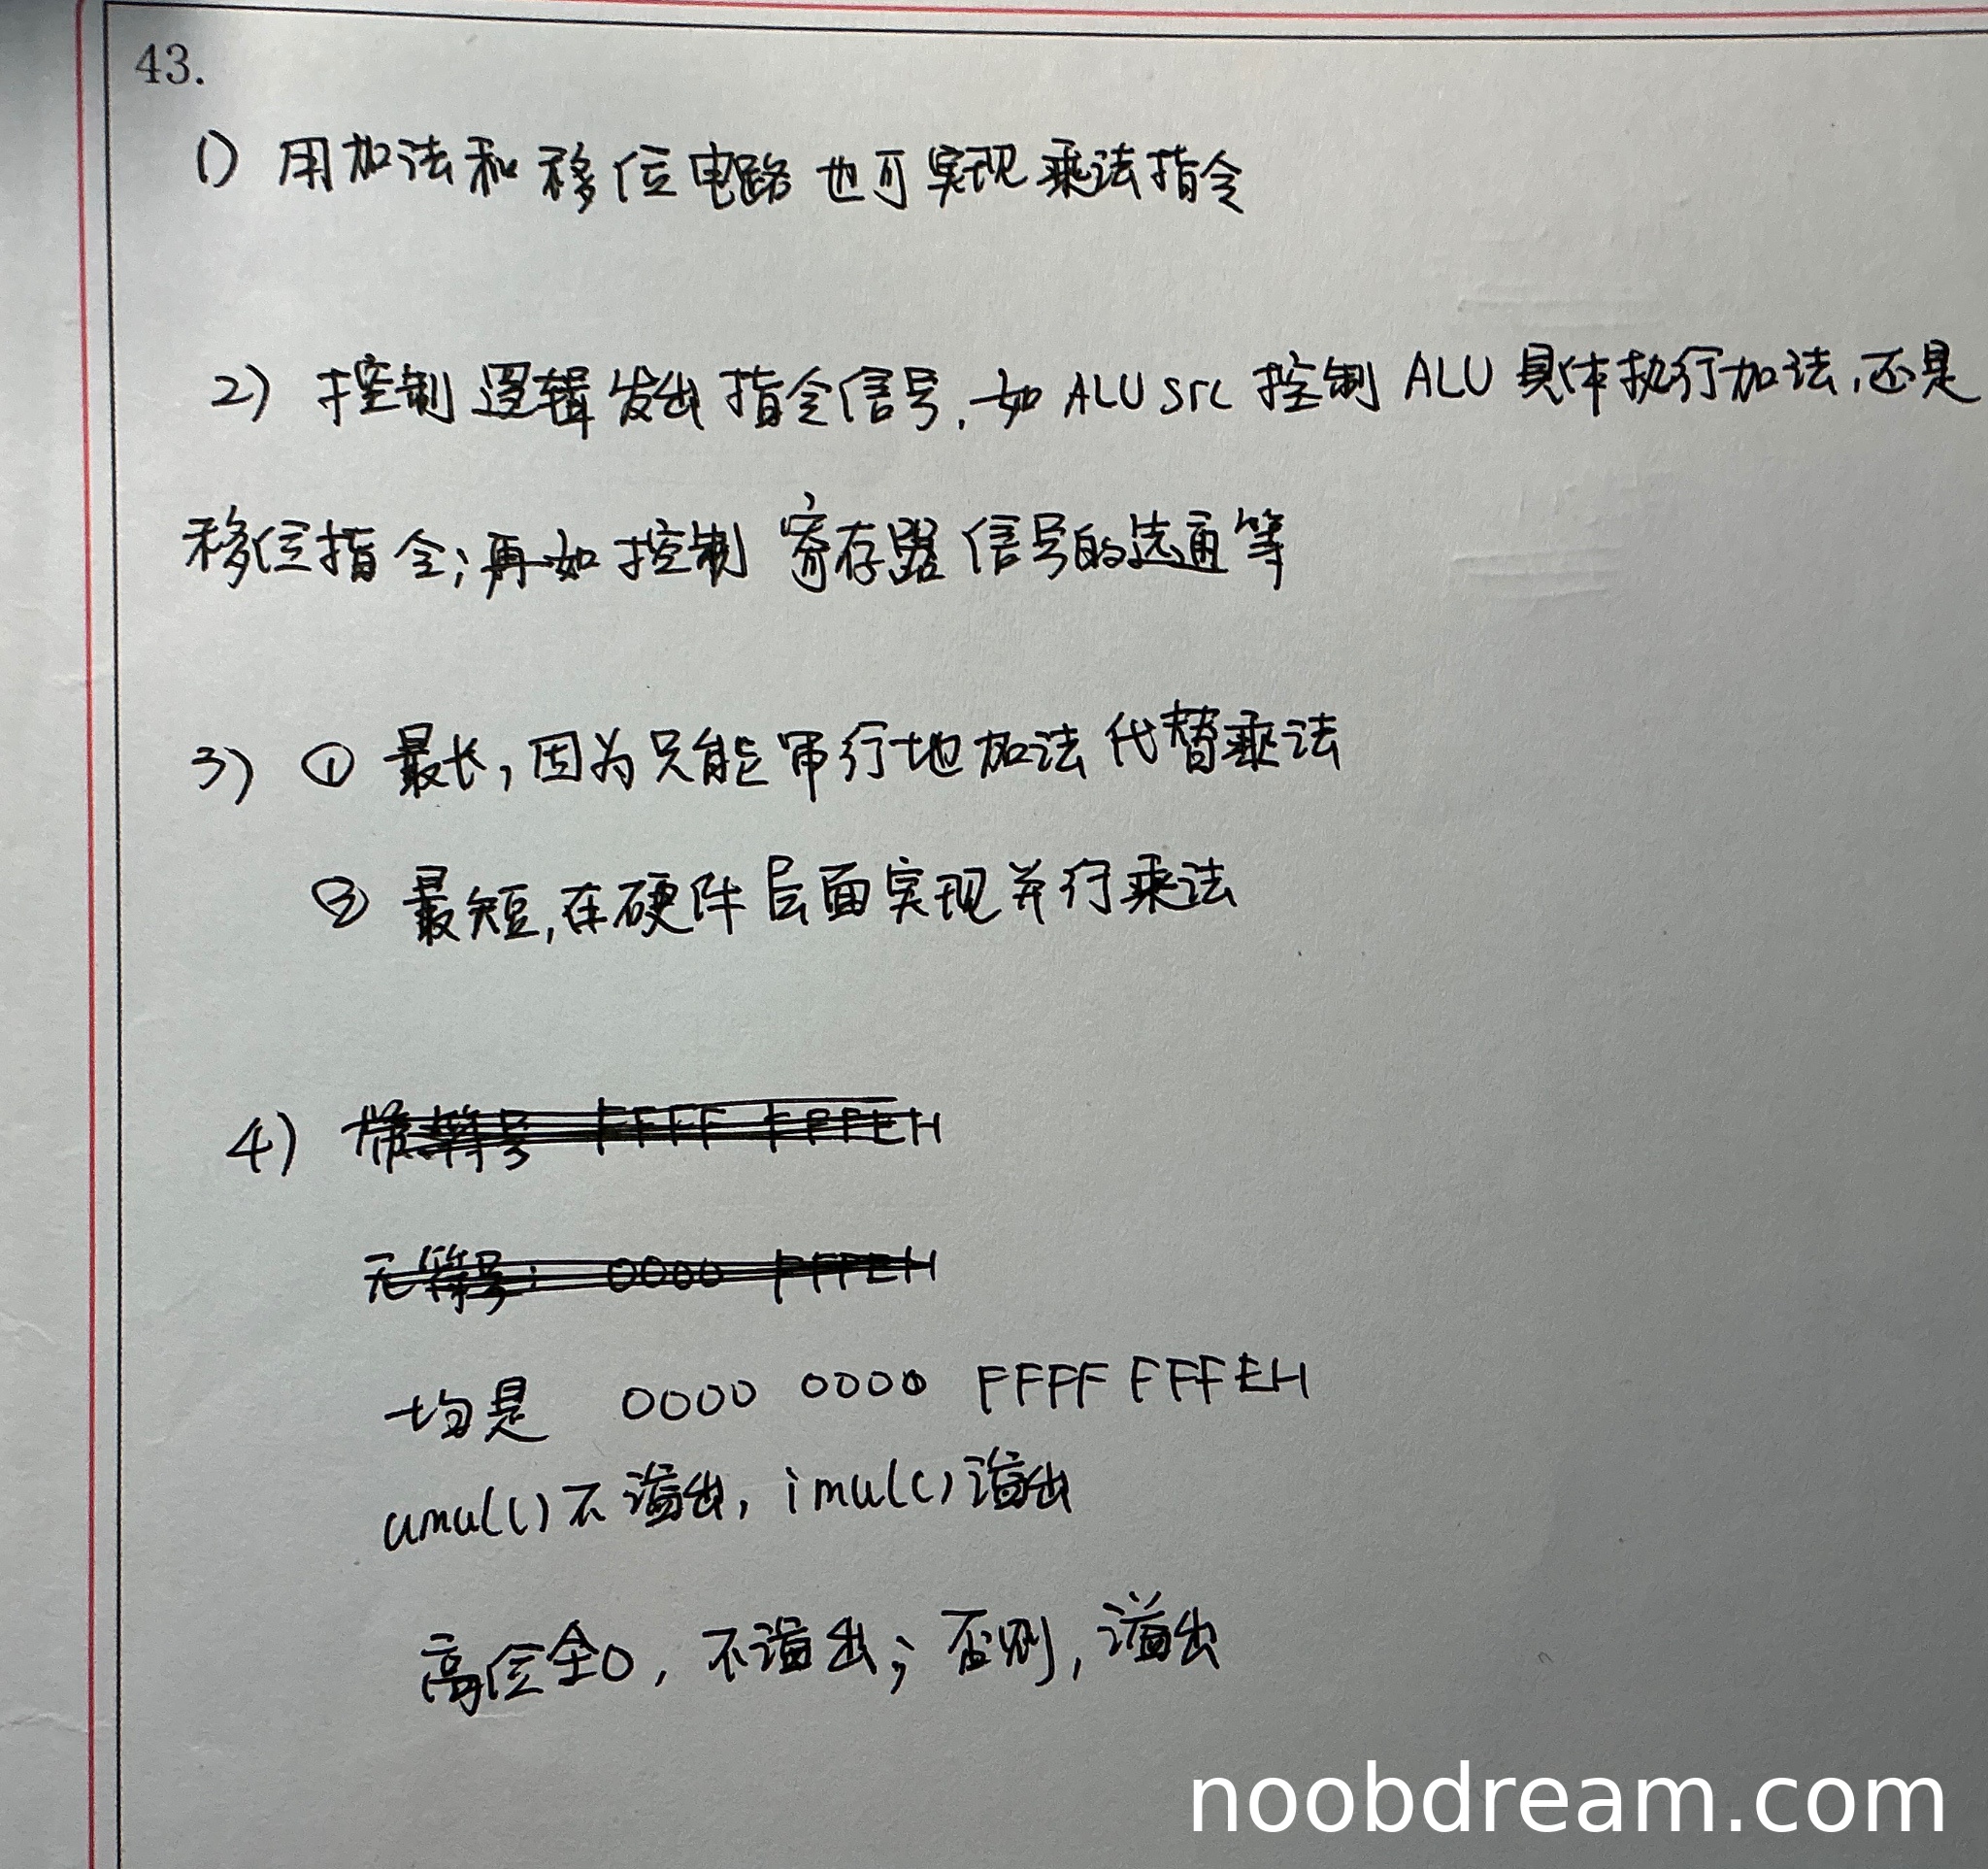 43.
1) 用加法和移位电路也可实现乘法指令
2) 控制逻辑发出指令信号,如 ALUsrc 控制 ALU 具体执行加法,还是
移位指令;再如控制寄存器信号的选通等
3) ① 最长,因为只能串行地加法代替乘法
② 最短,在硬件层面实现并行乘法
4) 带符号 FFFF FFFEH
无符号: 0000 FFFEH
均是 0000 0000 FFFF FFFEH
umul() 不溢出, imul() 溢出
高位全0, 不溢出; 否则, 溢出
noobdream.com